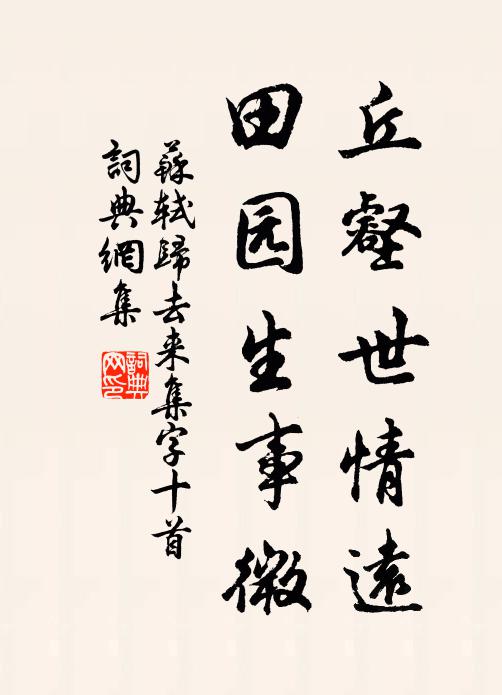 丘壑世情遠
田园生事微
蘇軾歸去来集字十首
詞典網集
詞典
网印